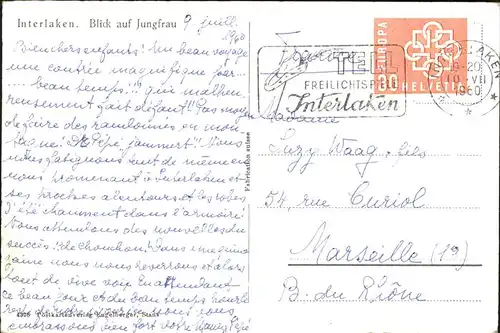 Interlaken. Blick auf Jungfrau
9 juill. 1960
Bien chers enfants! Un beau voyage
une contrée magnifique pour
beau temps!? qui malheu
reusement fait défaut! Pas moyen
de faire des randonnées en mon
tagne. Dr Pépé "jammert" Nous
nous fatiguons tant de même en
nous promenant à Interlaken et
ses proches alentours et les robes
d'été chôment dans l'armoire!
Nous attendons des nouvelles du
succès de Chouchou! Dans une quin
zaine nous nous reverrons et alors
tout de vive voix. En attendant
ce beau jour et du beau temps
embrassons bien fort votre Mamy Pépé
Fabrication suisse
TELL
FREILICHTSPIELE
Interlaken
EUROPA
HELVETIA
INTERLAKEN
-20
10.VII
1960
Madame
Suzy Waag-fils
54, rue Curiol
Marseille (19)
B. du Rhône